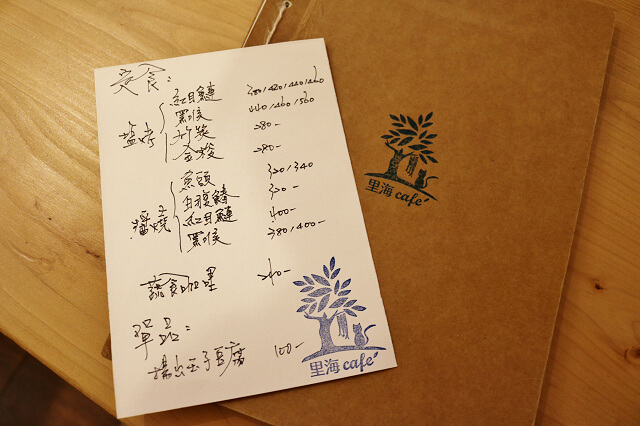 定食:
鹽烤
紅目鰱 380/420/440/460
黑喉 440/460/560
竹筴 280-
金梭 280-
醬燒
魚頭 320/340
白腹鰆 320-
紅目鰱 400-
黑喉 380/400-
蔬食咖哩 240-
單品:
揚出玉子豆腐 100-
里海 cafe'
里海 cafe'